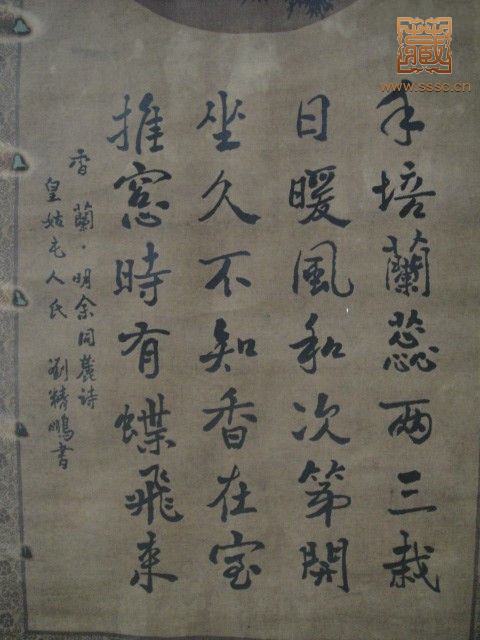 手培蘭蕊兩三栽
日暖風和次第開
坐久不知香在室
推窓時有蝶飛来
香蘭·明余同麓诗
皇姑屯人氏 劉精鵬書
藏
www.sssc.cn